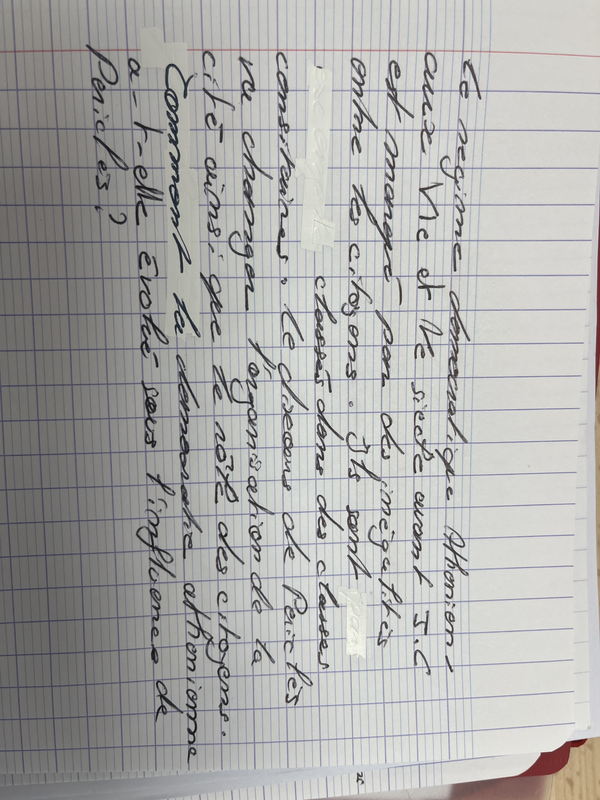 Le regime democratique Athenien,
aux VIe et IVe siecle avant J.C
est marqué par des inégalités
entre les citoyens. Ils sont
classés dans des classes
censitaires. Le discours de Periclès
va changer l'organisation de la
cité ainsi que le rôle des citoyens.
Comment la democratie athenienne
a-t-elle évolué sous l'influence de
Periclès ?